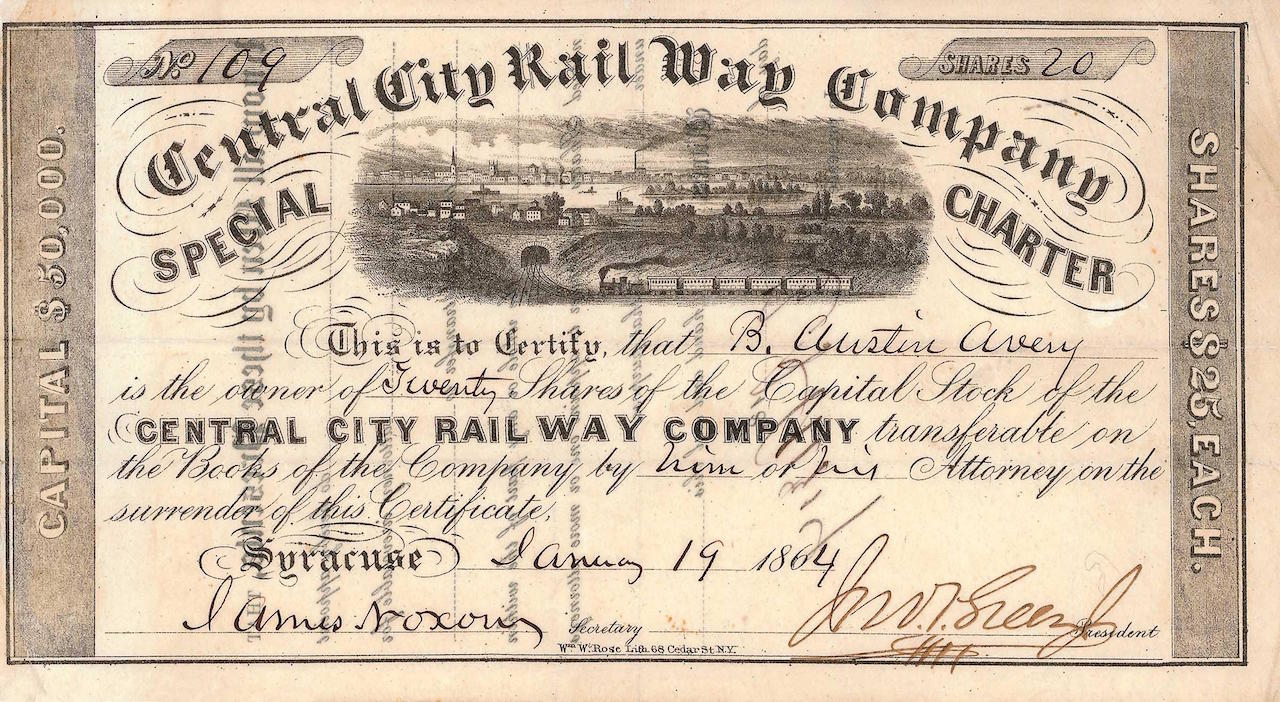 No. 109
SHARES 20
Central City Rail Way Company
SPECIAL CHARTER
CAPITAL $50,000.
SHARES $25, EACH.
This is to Certify, that B. Austin Avery
is the owner of Twenty Shares of the Capital Stock of the
CENTRAL CITY RAIL WAY COMPANY transferable on
the Books of the Company by him or his Attorney on the
surrender of this Certificate.
Syracuse January 19 1864
James Noxon Secretary President
Wm. W. Rose Lith. 68 Cedar St N.Y.